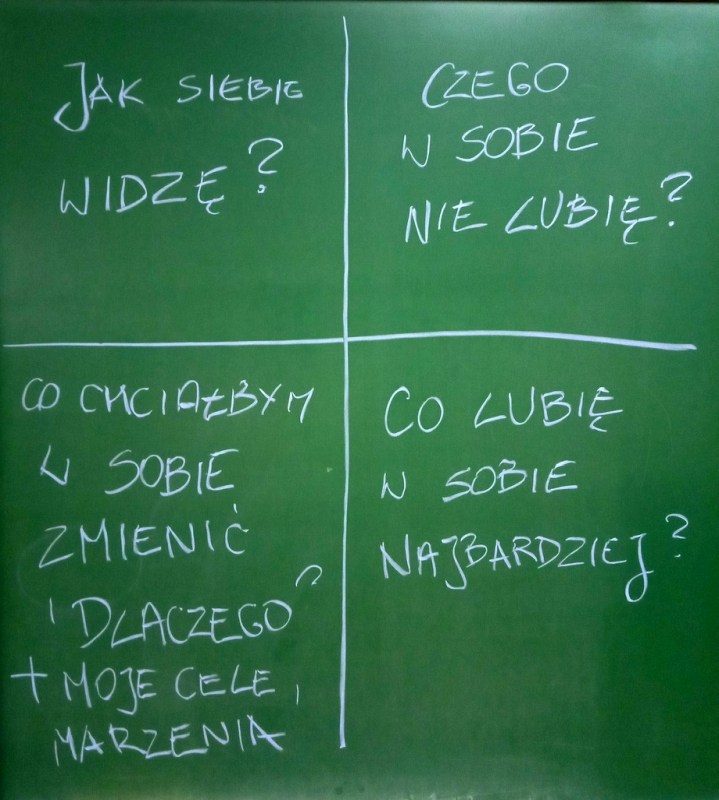 JAK SIEBIE
WIDZĘ?
CZEGO
W SOBIE
NIE LUBIĘ?
CO CHCIAŁBYM
W SOBIE
ZMIENIĆ
I DLACZEGO?
+ MOJE CELE,
MARZENIA
CO LUBIĘ
W SOBIE
NAJBARDZIEJ?